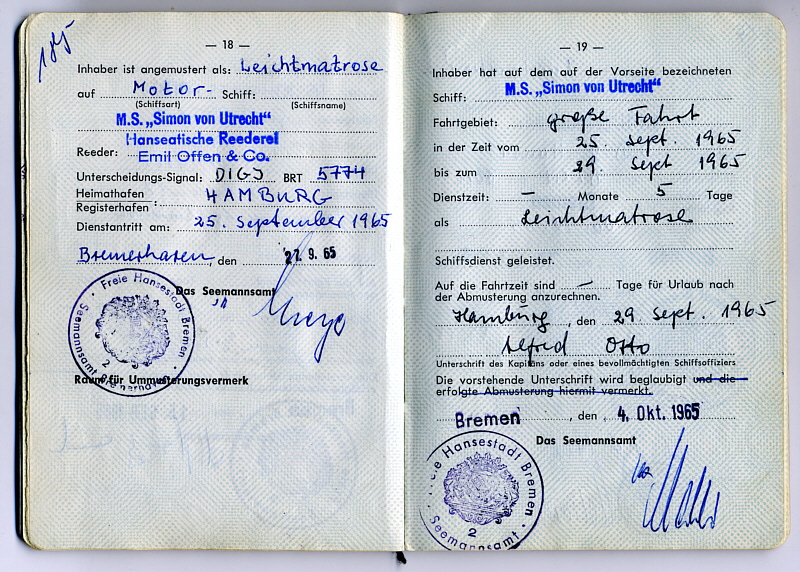 185
— 18 —
Inhaber ist angemustert als: Leichtmatrose
auf Motor- Schiff:
(Schiffsart) (Schiffsname)
M.S. „Simon von Utrecht"
Hanseatische Reederei
Reeder: Emil Offen & Co.
Unterscheidungs-Signal: DIGJ BRT 5774
Heimathafen
Registerhafen : HAMBURG
Dienstantritt am: 25. September 1965
Bremerhaven, den 27. 9. 65
Das Seemannsamt
Freie Hansestadt Bremen
Seemannsamt Bremerhaven
2
Raum für Ummusterungsvermerk
— 19 —
Inhaber hat auf dem auf der Vorseite bezeichneten
Schiff: M.S. „Simon von Utrecht"
Fahrtgebiet: große Fahrt
in der Zeit vom 25. Sept. 1965
bis zum 29. Sept 1965
Dienstzeit: — Monate 5 Tage
als Leichtmatrose
Schiffsdienst geleistet.
Auf die Fahrtzeit sind — Tage für Urlaub nach
der Abmusterung anzurechnen.
Hamburg, den 29 Sept. 1965
Alfred Otto
Unterschrift des Kapitäns oder eines bevollmächtigten Schiffsoffiziers
Die vorstehende Unterschrift wird beglaubigt und die
erfolgte Abmusterung hiermit vermerkt.
Bremen, den 4. Okt. 1965
Das Seemannsamt
Freie Hansestadt Bremen
Seemannsamt
2